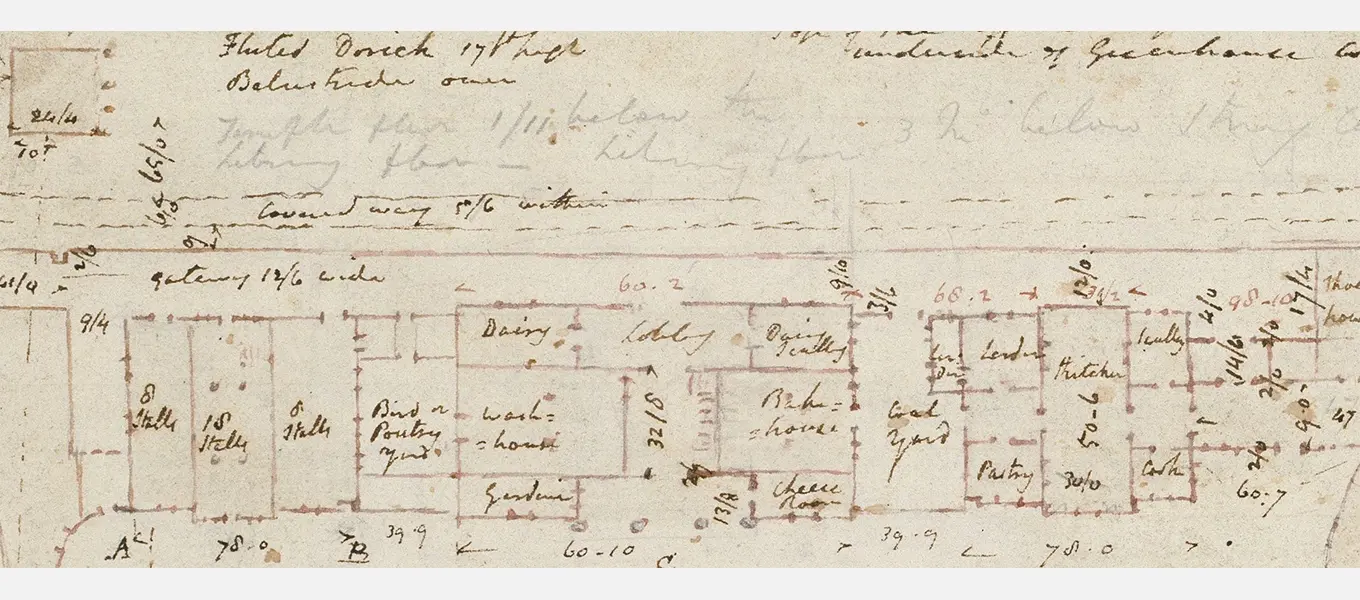 Fluted Dorick 17ft high
Balustrade over
underside of Greenhouse
24/4
10
65/0
Temple floor 1/11 below
Library floor –
Library floor
3 In below String
Covered way 5/6 within
gateway 12/6 wide
2/6
9/4
60.2
9/10
3/6
68.2
12/0
31/2
4/0
98-10
17/4
Dairy
Lobby
Dairy
Scully
Larder
Kitchen
Scully
14/6
2/0
8
Stalls
18
Stalls
8
Stalls
Bird or
Poultry
yard
wash=
=house
32/8
Bake=
=house
Coal
yard
50-6
9-0
47
Gardiner
13/8
Cheese
Room
Pastry
30/0
Cook
2/0
60-7
A
78-0
B
39.9
60-10
39.9
78.0